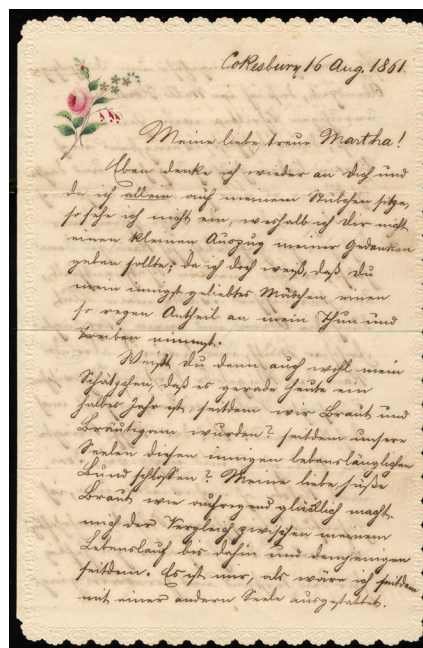 Cokesbury 16 Aug. 1861.
Meine liebe treue Martha!
Eben denke ich wieder an Dich und
da ich allein auf meinem Stübchen sitze,
so sehe ich nicht ein, weshalb ich Dir nicht
einen kleinen Auszug meiner Gedanken
geben sollte; da ich doch weiß, daß Du
mein innigst geliebtes Mädchen einen
so regen Antheil an mein Thun und
Treiben nimmst.
Weißt Du denn auch wohl mein
Schätzchen, daß es gerade heute ein
halbes Jahr ist, seitdem wir Braut und
Bräutigam wurden? seitdem unsere
Seelen diesen innigen lebenslänglichen
Bund schlossen? Meine liebe, süße
Braut, wie aufregend glücklich macht
mich der Vergleich zwischen meinem
Lebenslauf bis dahin und demjenigen
seitdem. Es ist mir, als wäre ich seitdem
mit einer andern Seele ausgestattet.